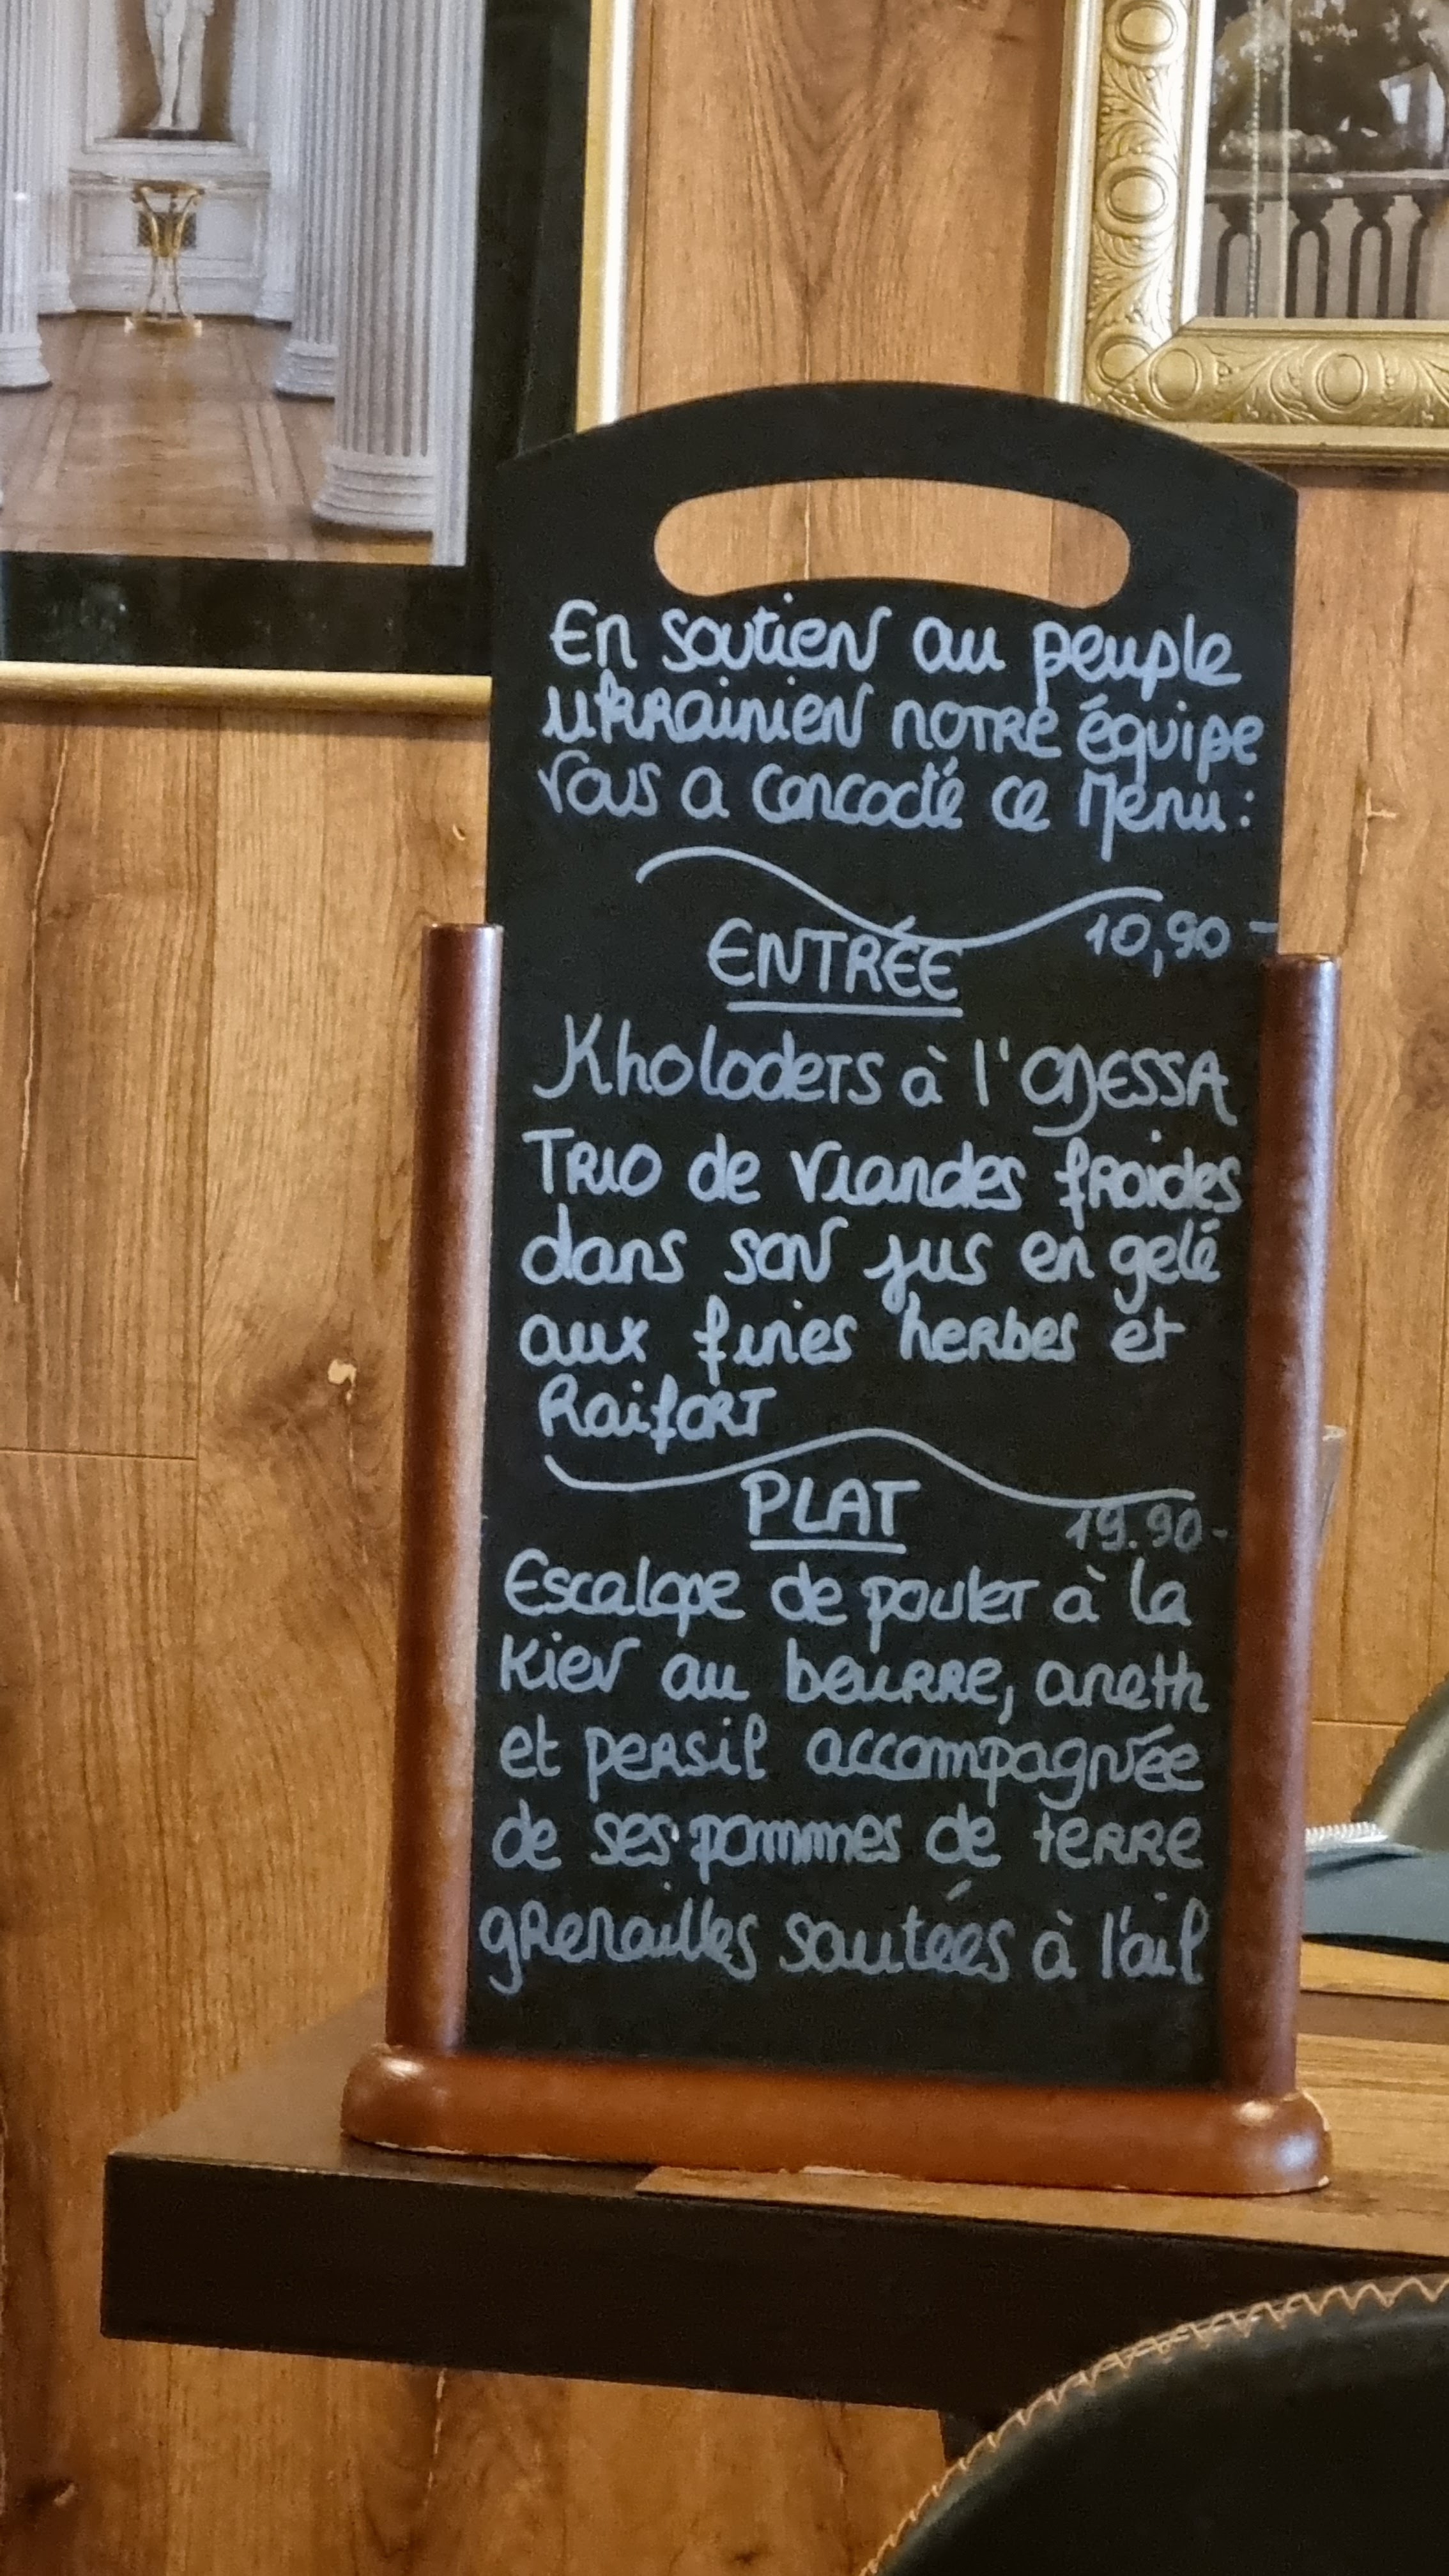 En soutien au peuple
ukrainien notre équipe
vous a concocté ce Menu :
ENTRÉE
10,90 -
Kholodets à l'ODESSA
Trio de viandes froides
dans son jus en gelé
aux fines herbes et
Raifort
PLAT
19.90-
Escalope de poulet à la
Kiev au beurre, aneth
et persil accompagnée
de ses pommes de terre
grenailles sautées à l'ail